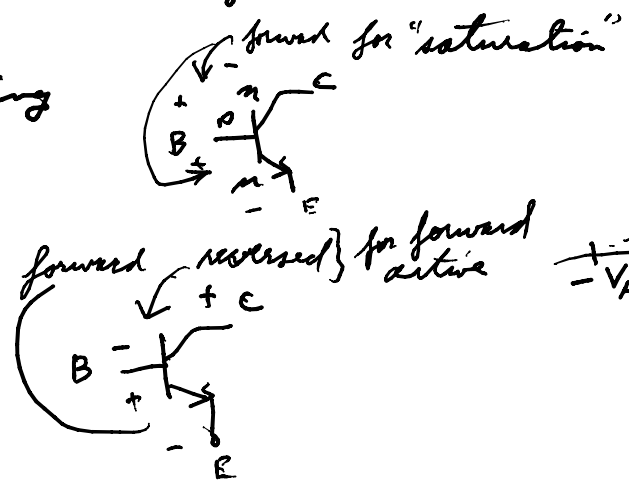 forward for "saturation"
ng
- n C
+ p
B
+ n
- E
forward reversed } for forward
active
+ C
B -
+
-
E
- V